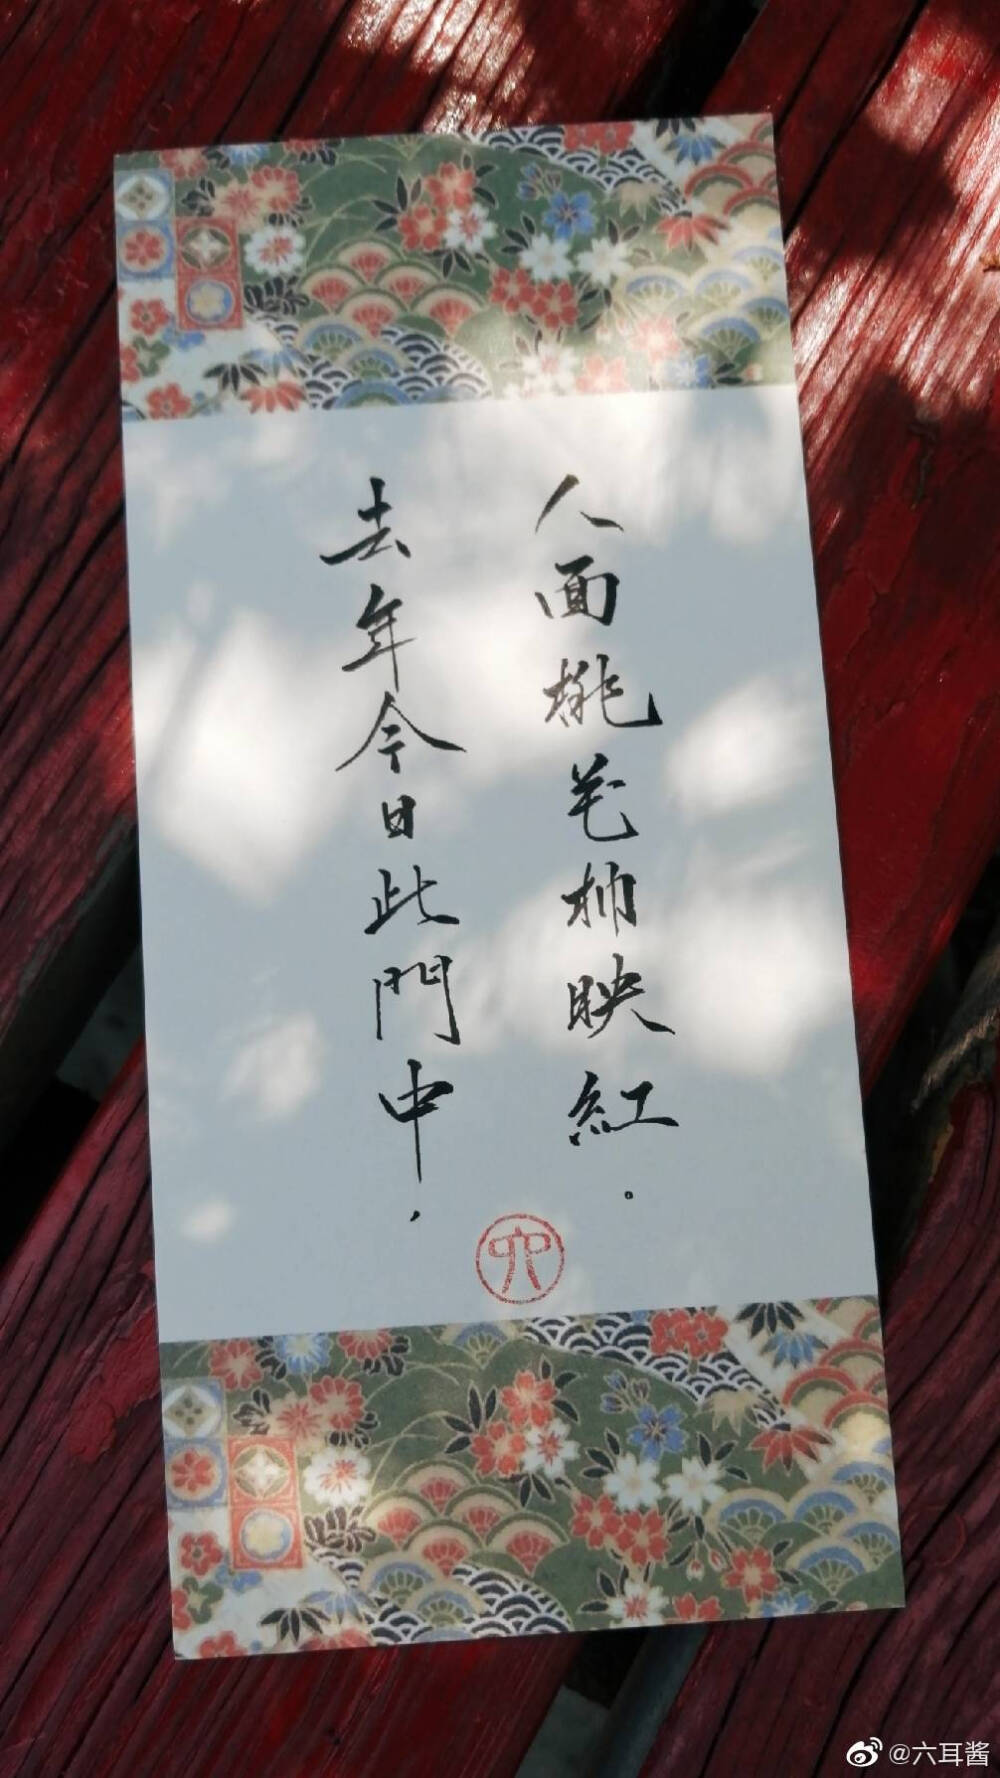 去年今日此門中，
人面桃花相映紅。
六
@六耳酱